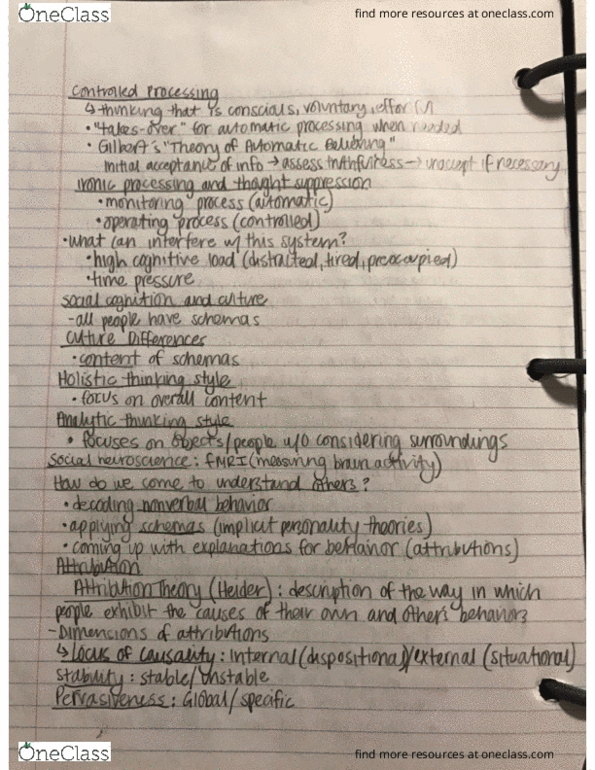 OneClass
find more resources at oneclass.com
Controlled Processing
↳ thinking that is conscious, voluntary, effor
• "takes-over" for automatic processing when needed
• Gilbert's "Theory of Automatic Believing"
Initial acceptance of info → assess truthfulness → unaccept if necessary
ironic processing and thought suppression
• monitoring process (automatic)
• operating process (controlled)
• what can interfere w/ this system?
• high cognitive load (distracted, tired, preoccupied)
• time pressure
social cognition and culture
- all people have schemas
Culture Differences
• content of schemas
Holistic thinking style
• focus on overall content
Analytic thinking style
• focuses on objects/people w/o considering surroundings
social neuroscience: fMRI (measuring brain activity)
How do we come to understand others?
• decoding nonverbal behavior
• applying schemas (implicit personality theories)
• coming up with explanations for behavior (attributions)
Attribution
Attribution Theory (Heider): description of the way in which
people exhibit the causes of their own and others behaviors
- Dimensions of attributions
↳ locus of causality: Internal (dispositional)/external (situational)
Stability: stable/unstable
Pervasiveness: Global/specific
OneClass
find more resources at oneclass.com